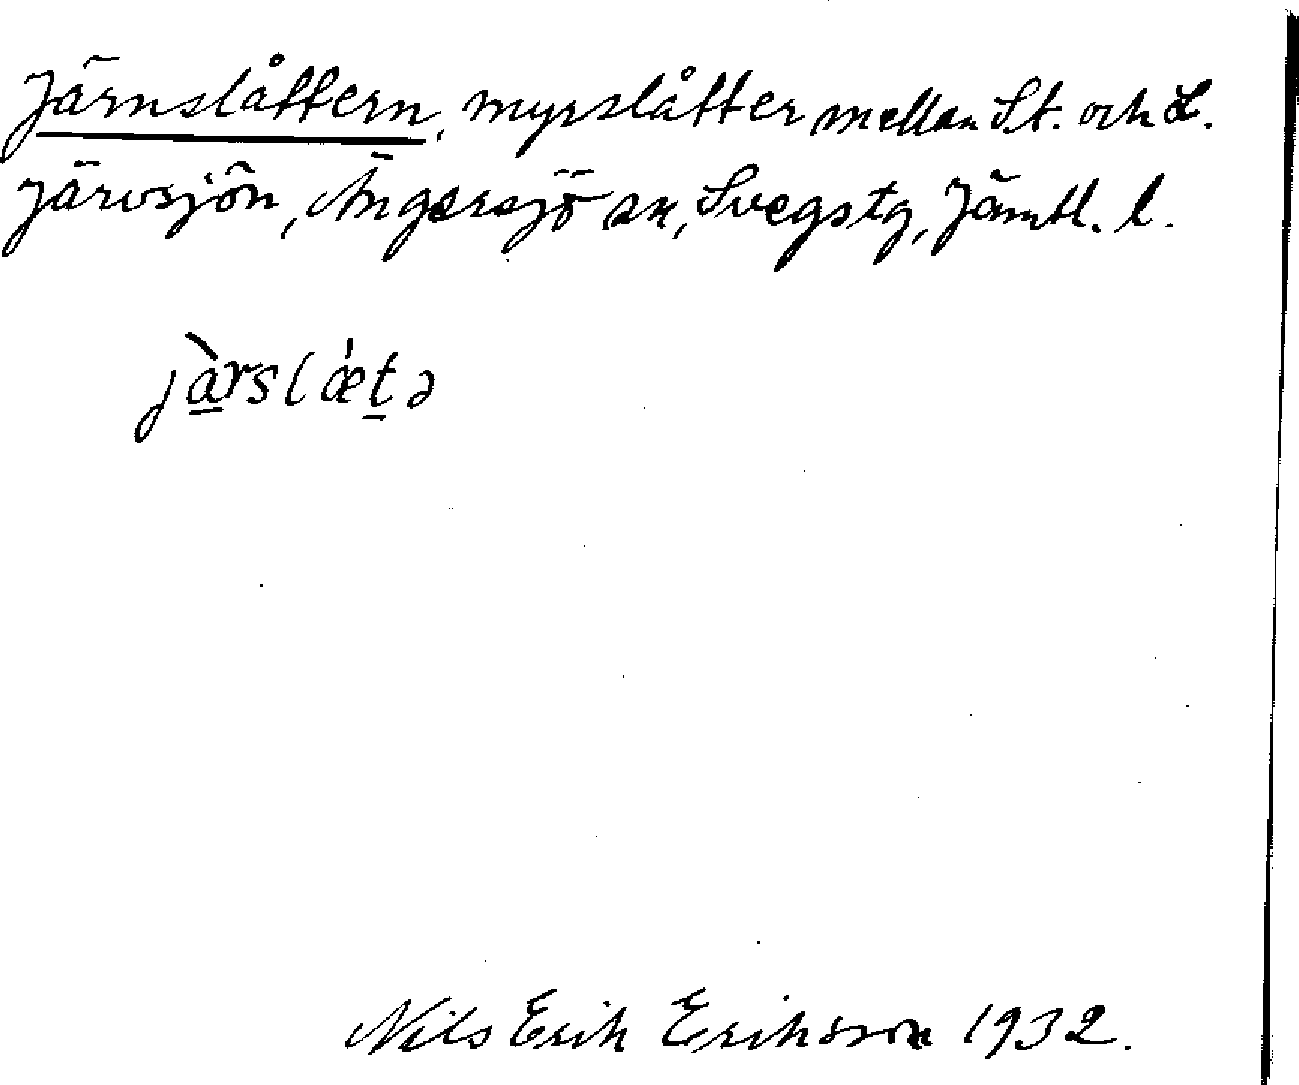 Järnslåttern, myrslåtter mellan St. och L.
Järvsjön, Ängersjö sn, Svegs tg, Jämtl. l.
jà̱rslǽṯə
Nils Erik Eriksson 1932.